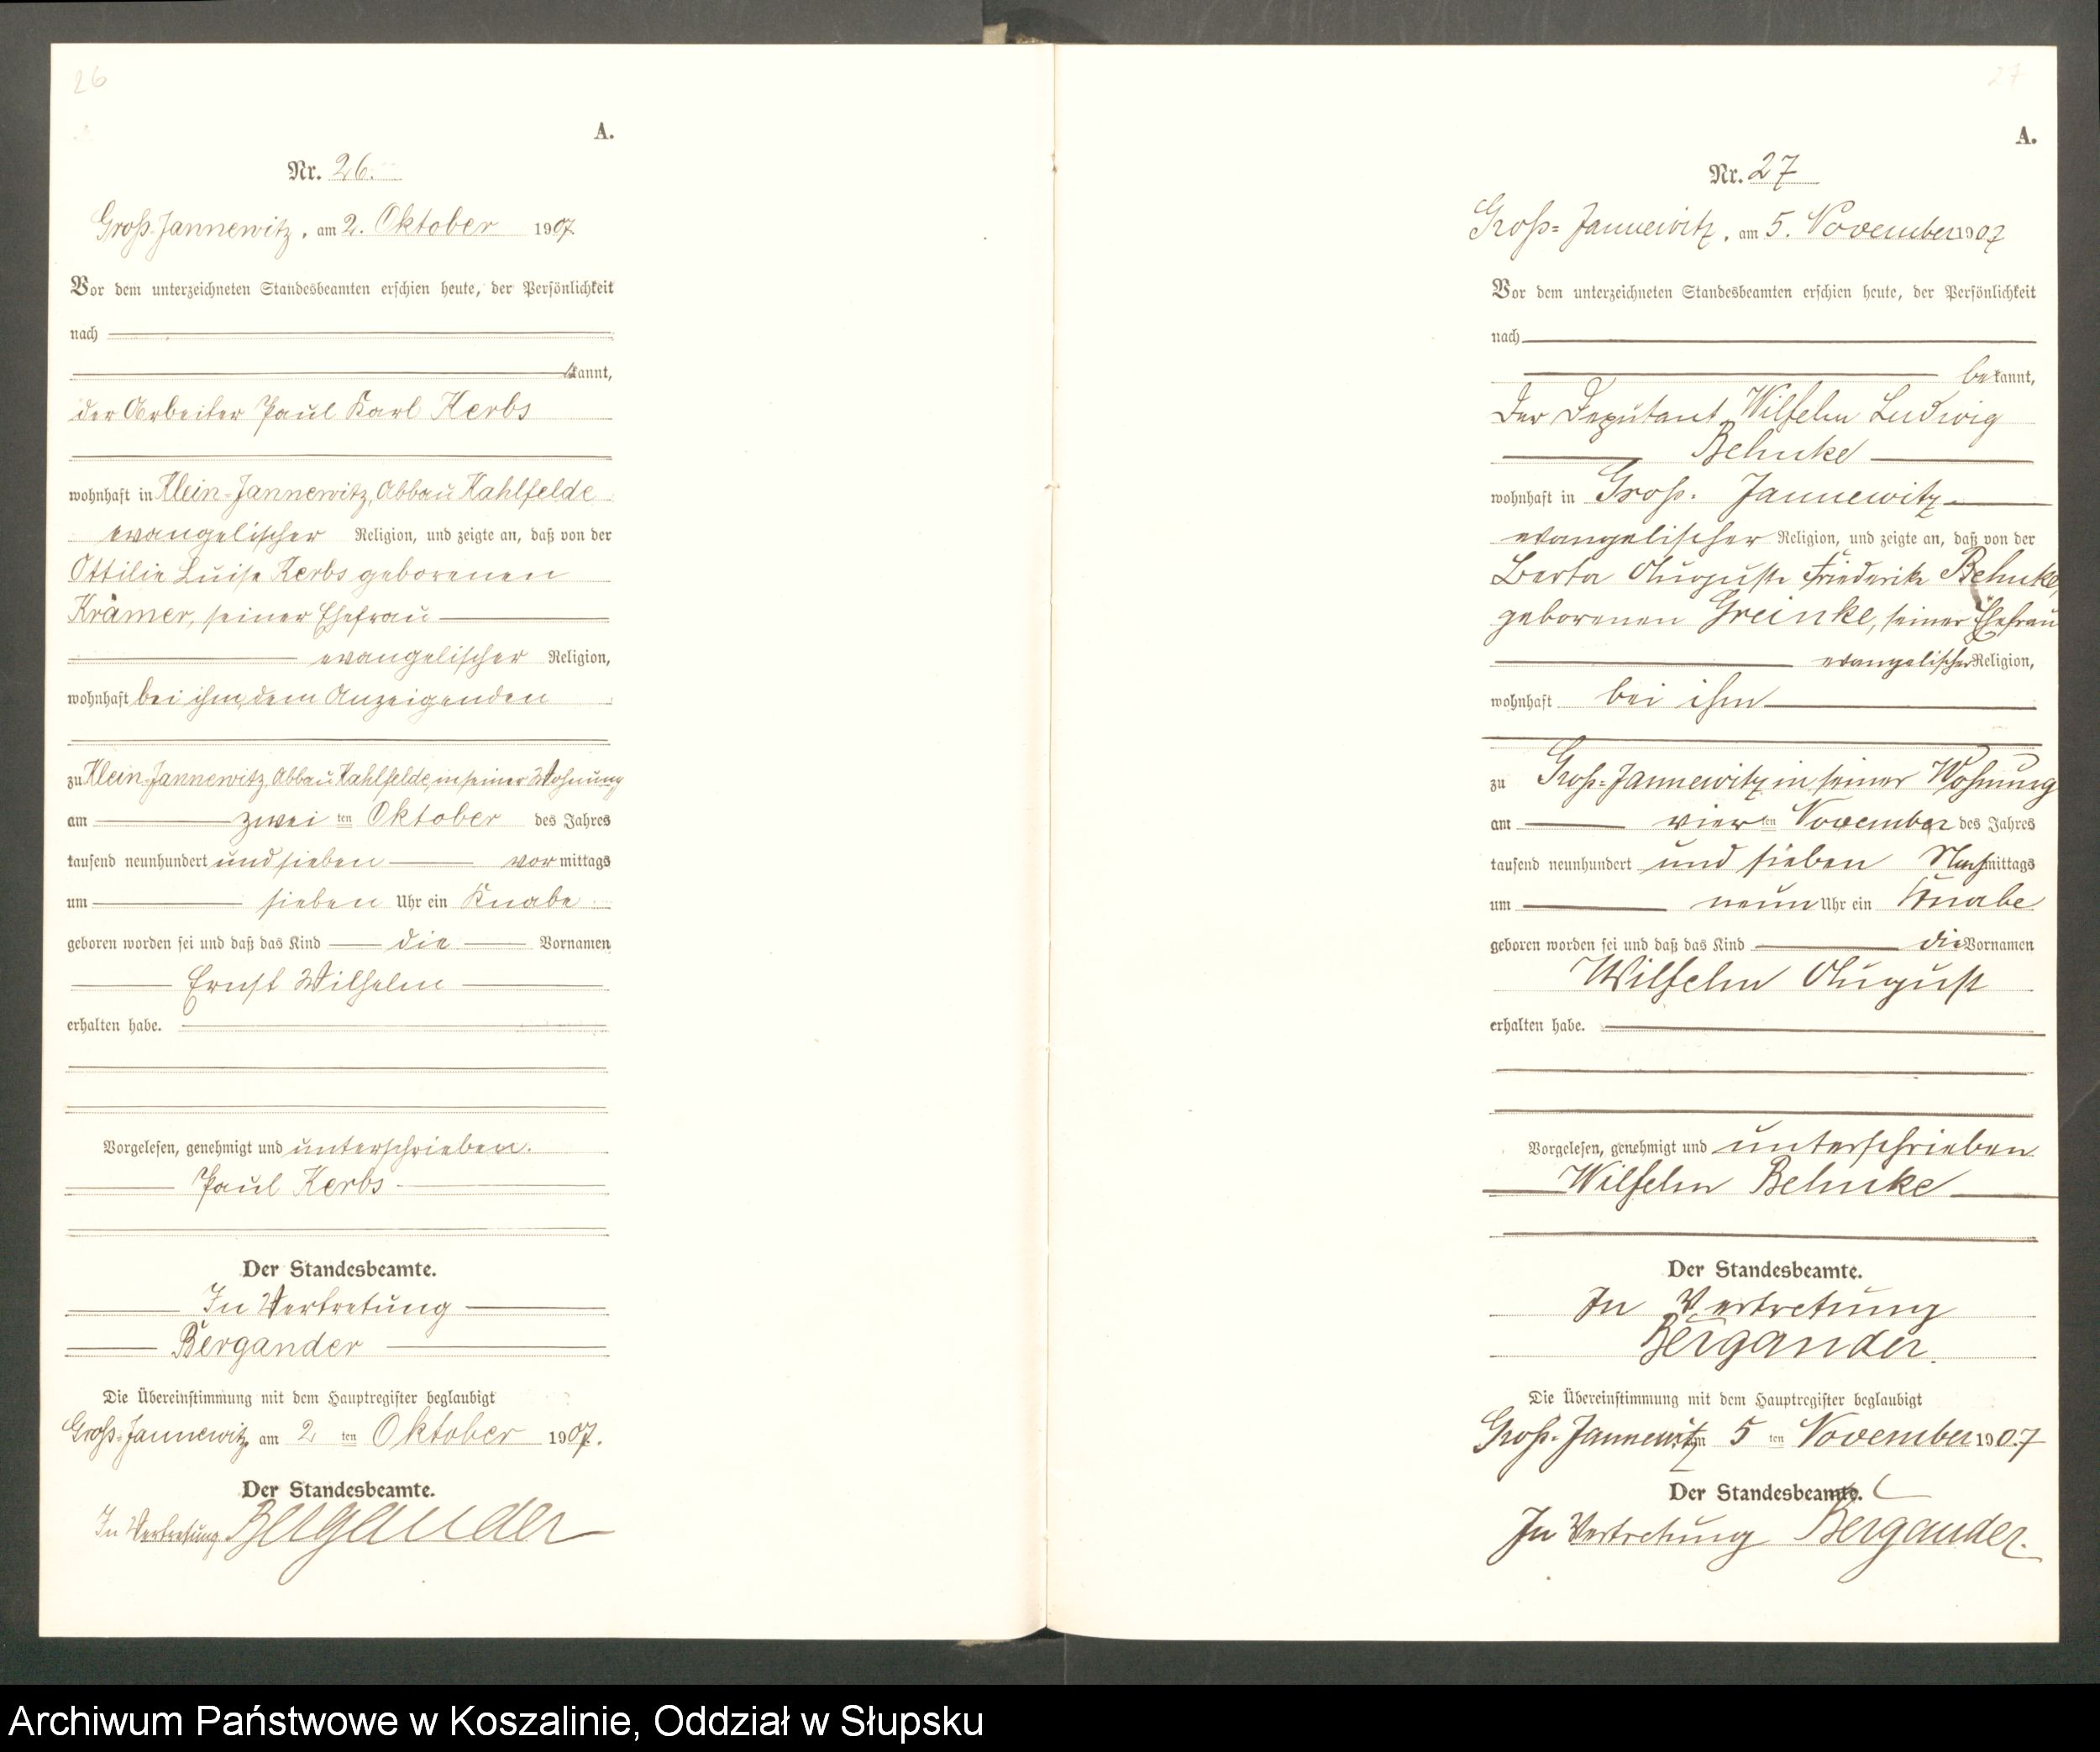 26
A.
Nr. 26.
Groß-Jannewitz, am 2. Oktober 1907
Vor dem unterzeichneten Standesbeamten erschien heute, der Persönlichkeit
nach
kannt,
der Arbeiter Paul Karl Kerbs
wohnhaft in Klein-Jannewitz, Abbau Kahlfelde
evangelischer Religion, und zeigte an, daß von der
Ottilie Luise Kerbs geborenen
Krämer, seiner Ehefrau
evangelischer Religion,
wohnhaft bei ihm, dem Anzeigenden
zu Klein-Jannewitz, Abbau Kahlfelde, in seiner Wohnung
am zwei ten Oktober des Jahres
tausend neunhundert und sieben vor mittags
um sieben Uhr ein Knabe
geboren worden sei und daß das Kind die Vornamen
Ernst Wilhelm
erhalten habe.
Vorgelesen, genehmigt und unterschrieben.
Paul Kerbs
Der Standesbeamte.
In Vertretung
Bergander
Die Übereinstimmung mit dem Hauptregister beglaubigt
Groß-Jannewitz, am 2 ten Oktober 1907.
Der Standesbeamte.
In Vertretung Bergander
27
A.
Nr. 27
Groß-Jannewitz, am 5. November 1907
Vor dem unterzeichneten Standesbeamten erschien heute, der Persönlichkeit
nach
bekannt,
der Deputant Wilhelm Ludwig
Behnke
wohnhaft in Groß-Jannewitz
evangelischer Religion, und zeigte an, daß von der
Berta Auguste Friederike Behnke,
geborenen Greinke, seiner Ehefrau
evangelischer Religion,
wohnhaft bei ihm
zu Groß-Jannewitz in seiner Wohnung
am vier ten November des Jahres
tausend neunhundert und sieben Nachmittags
um neun Uhr ein Knabe
geboren worden sei und daß das Kind die Vornamen
Wilhelm August
erhalten habe.
Vorgelesen, genehmigt und unterschrieben
Wilhelm Behnke
Der Standesbeamte.
In Vertretung
Bergander.
Die Übereinstimmung mit dem Hauptregister beglaubigt
Groß-Jannewitz am 5 ten November 1907
Der Standesbeamte.
In Vertretung Bergander.
Archiwum Państwowe w Koszalinie, Oddział w Słupsku